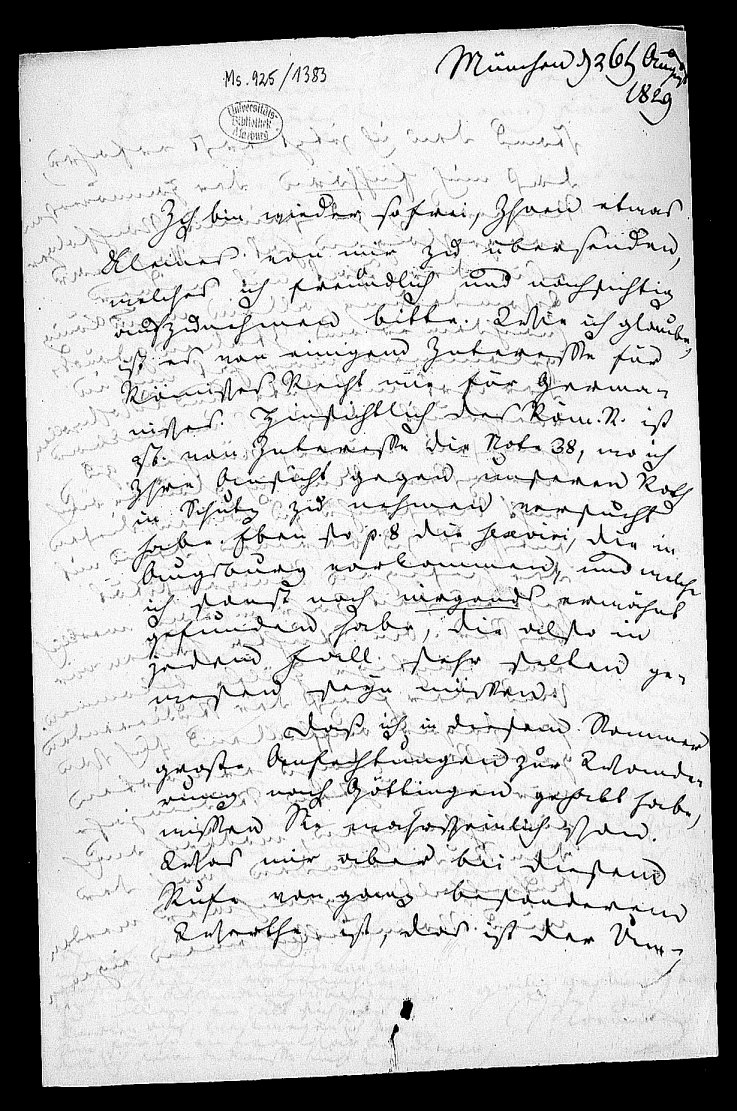 Ms. 925/1383
Universitäts-
Bibliothek
Marburg
München d 26t August
1829
Ich bin wieder so frei, Ihnen etwas
Kleines von mir zu übersenden,
welches ich freundlich und nachsichtig
aufzunehmen bitte. Wie ich glaube,
ist es von einigem Interesse für
Römisches Recht wie für Germa-
nisches. Hinsichtlich des Röm. R. ist
von Interesse die Note 38, wo ich
Ihre Ansicht gegen unseren Roth
in Schutz zu nehmen versucht
habe. Eben so p. 8 die sexviri, die in
Augsburg vorkommen, und welche
ich sonst noch nirgends erwähnt
gefunden habe, die also in
jedem Fall sehr selten ge-
wesen seyn müssen.
Daß ich in diesem Sommer
große Anfechtungen zur Wande-
rung nach Göttingen gehabt habe,
wissen Sie wahrscheinlich schon.
Was mir aber bei diesem
Rufe von ganz besonderem
Werthe ist, das ist der Um-